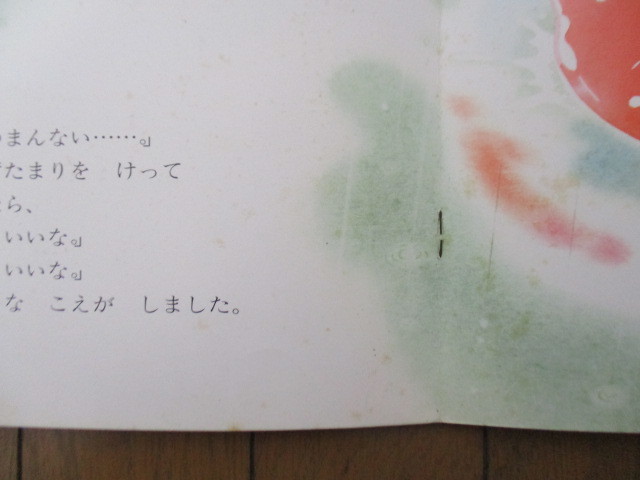 まんない……』
たまりを　けって
ら、
いいな』
いいな』
な　こえが　しました。